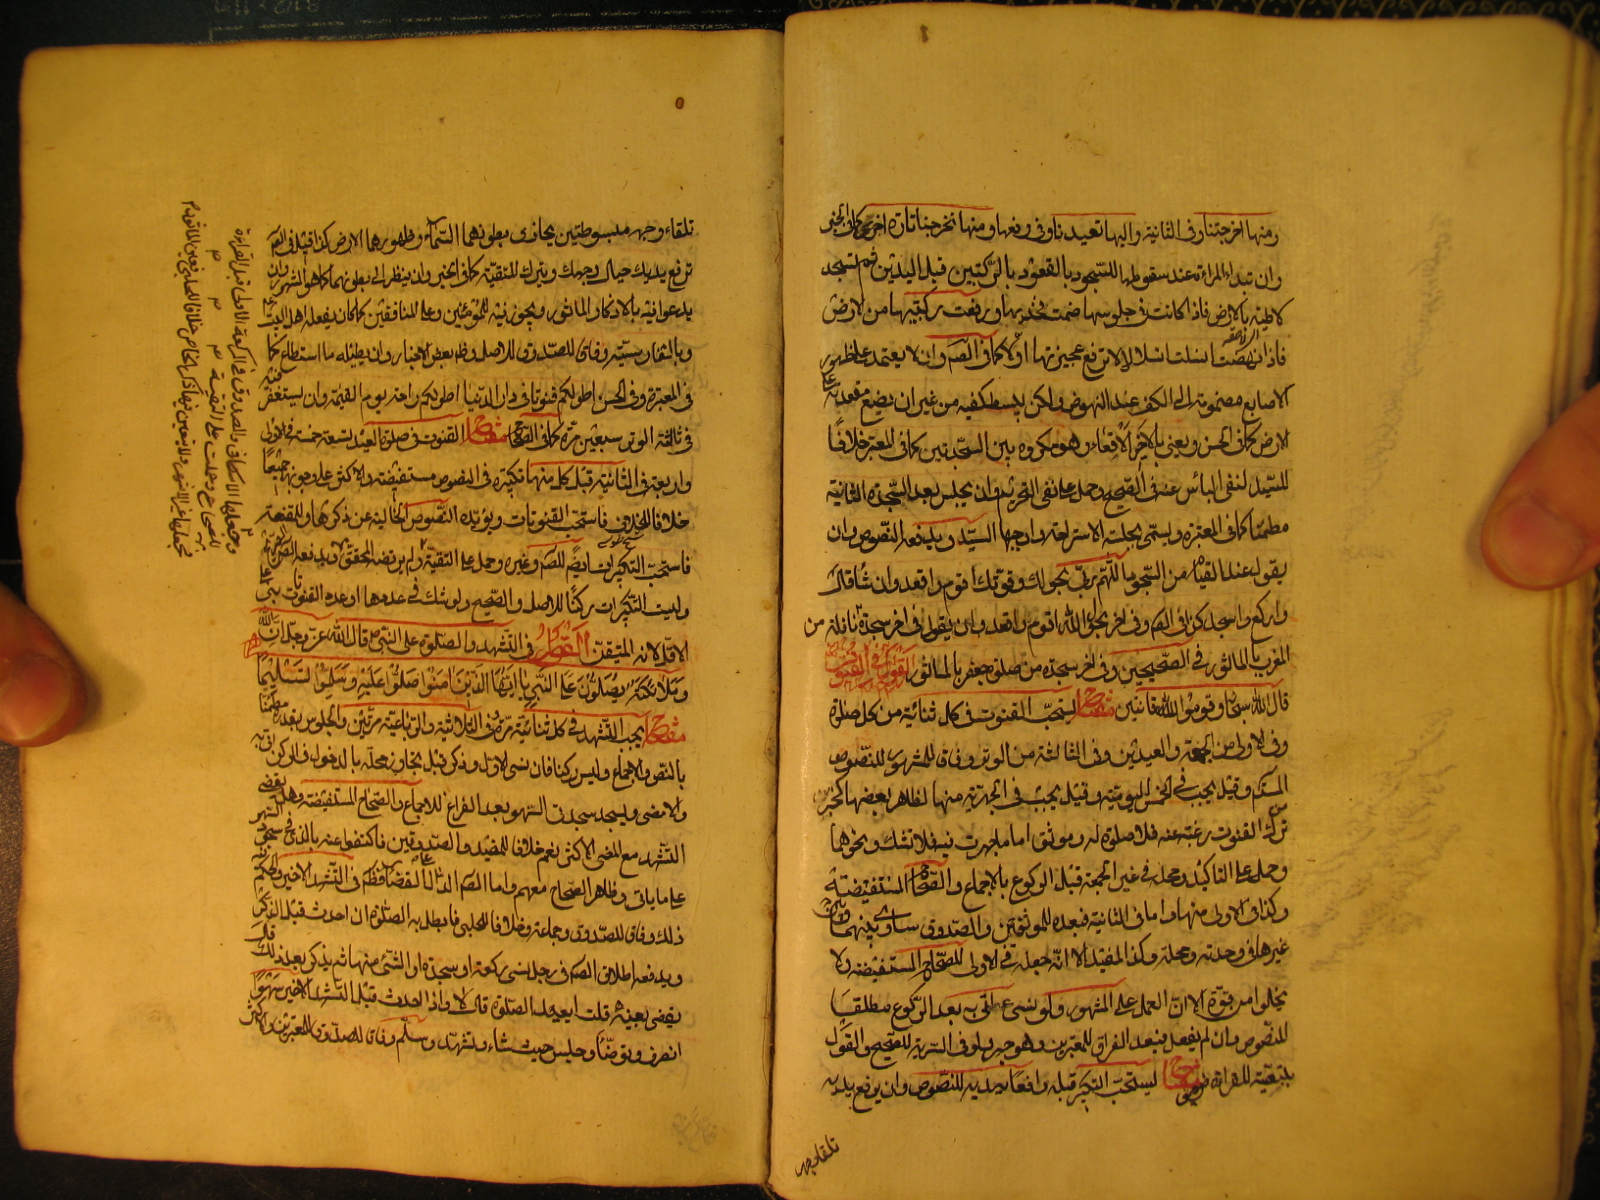 ومنها اخرجتنا وفى الثانية واليها تعيدنا وفى رفعها ومنها تخرجنا تارة اخرى كما فى الخبر
وان تبداء المراءة عند سقوطها للسجود بالقعود بالركبتين قبل اليدين ثم تسجد
لاطئة بالارض فاذا كانت فى جلوسها ضمت فخذيها ورفعت ركبتيها من الارض
فاذا نهضت انسلت انسلالا لا ترفع عجيزتها اولا كما فى الصحيح وان لا يعتمد على ظهور
الاصابع مضمومة الى الكف عند النهوض ولكن يبسط كفيه من غير ان يضع مقعدته على
الارض كما فى الحسن ويعنى بالاخير الاقعاء وهو مكروه بين السجدتين كما فى المعتبر خلافا
للسيد لنفى البأس عنه فى الصحيح وحمل على نفى التحريم وان يجلس بعد السجدة الثانية
مطمئنا كما فى المعتبرة ويسمى بجلسة الاستراحة واوجبها السيد ويدفعه النصوص وان
يقول عند القيام من السجود اللهم ربى بحولك وقوتك اقوم واقعد وان شاء قال
واركع واسجد كذا فى الصحيح وفى اخر بحول الله اقوم واقعد وان يقول فى اخر سجدة نافلة من
المغرب بالماثور فى الصحيحين وفى اخر سجدة من صلوة جعفر بالماثور القول فى القنوت
قال الله سبحانه وقوموا لله قانتين مفتاح يستحب القنوت فى كل ثنائية من كل صلوة
وفى الاولى من الجمعة والعيدين وفى الثالثة من الوتر وفاقا للمشهور للنصوص
وقيل يجب فى الخمس اليومية وقيل يجب فى الجهرية منها لظاهر بعضها كخبر من
ترك القنوت رغبة عنه فلا صلوة له وموثق اما ما جهرت فيه فلا تشك ونحوهما
وحمل على التاكيد ومحله فى غير الجمعة قبل الركوع بالاجماع والصحاح المستفيضة
وكذا فى الاولى منها واما فى الثانية فبعده للموثقين والصدوق ساوى بينهما وبين
غيرها فى وحدته ومحله وكذا المفيد الا انه جعله فى الاولى للصحاح المستفيضة ولا
يخلوا من قوة الا ان العمل على المشهور ولو نسى اتى به بعد الركوع مطلقا
للنصوص وان لم يفعل فبعد الفراق للمعتبرين وهو جهر ولو فى السرية للصحيح والقول
بتبعيته للقراءة مفتاح يستحب التكبير قبله رافعا يديه للنصوص وان يرفع يديه
تلقاء وجهه
تلقاء وجهه مبسوطتين يحاذى ببطونهما السماء وظهورهما الارض كذا قيل وفى الصحيح
ترفع يديك حيال وجهك ويترك للتقية كما فى الخبر وان ينظر الى بطونهما كما هو المشهور وان
يدعوا فيه بالاذكار الماثورة ويجوز فيه للمؤمنين وعلى المنافقين كما كان يفعله اهل البيت
وبالفارسية وفاقا للصدوق للاصل وظاهر بعض الاخبار وان يطيله ما استطاع كما
فى المعتبرة وفى الحسن اطولكم قنوتا فى دار الدنيا اطولكم راحة يوم القيمة وان يستغفر فيه
فى ثالثة الوتر سبعين مرة كما فى الصحاح مفتاح القنوت فى صلوة العيد تسعة خمسة فى الاولى
واربعة فى الثانية قبل كل منها تكبيرة فى النصوص مستفيضة والاكثر على وجوبها جميعا
خلافا للخلاف فاستحب القنوتات ويؤيده النصوص الخالية عن ذكرها وللمقنعة
فاستحب التكبيرات ايضا للصحيح وغيره وحمل على التقية ولم يرتضه المحقق
وليست التكبيرات ركنا للاصل والصحيح ولو شك فى عددها او عدد القنوتات بنى على
الاقل لانه المتيقن القول فى التشهد والصلوة على النبى ص قال الله عز وجل ان الله
وملائكته يصلون على النبى يا ايها الذين امنوا صلوا عليه وسلموا تسليما
مفتاح يجب التشهد فى كل ثنائية مرة وفى الثلاثية والرباعية مرتين والجلوس بقدره مطمئنا
بالنص والاجماع وليس ركنا فان نسى الاول وذكر قبل تجاوز محله بالدخول فى الركن اتى به
والا مضى ويسجد سجدتى السهو بعد الفراغ للاجماع والصحاح المستفيضة وهل يقضى
التشهد مع المضى الاكثر نعم خلافا للمفيد والصدوقين فاكتفوا عنه بالذى فى سجود السهو
على ما ياتى وظاهر الصحاح معهم واما الصحيح الدال على القضاء فظاهر فى التشهد الاخير والحكم فى
ذلك وفاق للصدوق وجماعة وخلافا للحلبى فابطل به الصلوة ان احدث قبل التذكر
ويدفعه اطلاق الصحيح فى رجل نسى ركعة او سجدة او الشئ منها ثم يذكر بعد ذلك قال
يقضى بعينه قلت ايعيد الصلوة قال لا واذا احدث قبل التشهد الاخير سهوا
انصرف وتوضأ وجلس حيث شاء وتشهد وسلم وفاقا للصدوق للمعتبرين